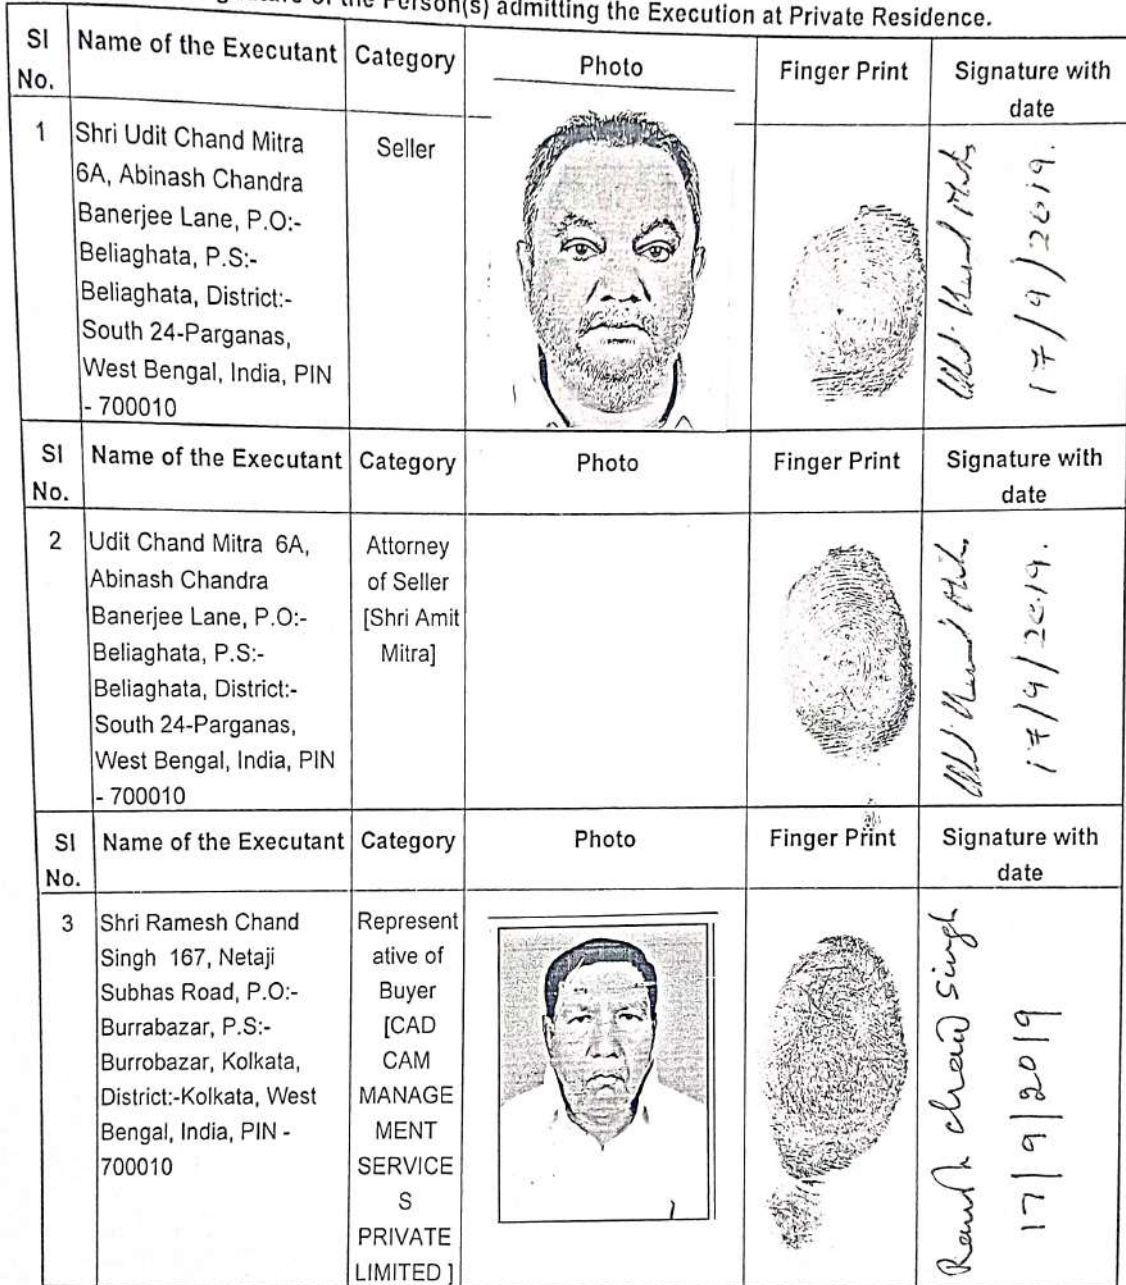 of the Person(s) admitting the Execution at Private Residence.
Sl No. Name of the Executant Category Photo Finger Print Signature with date
1
Shri Udit Chand Mitra
6A, Abinash Chandra
Banerjee Lane, P.O:-
Beliaghata, P.S:-
Beliaghata, District:-
South 24-Parganas,
West Bengal, India, PIN
- 700010
Seller
17/9/2019.
Sl No. Name of the Executant Category Photo Finger Print Signature with date
2
Udit Chand Mitra 6A,
Abinash Chandra
Banerjee Lane, P.O:-
Beliaghata, P.S:-
Beliaghata, District:-
South 24-Parganas,
West Bengal, India, PIN
- 700010
Attorney
of Seller
[Shri Amit
Mitra]
17/9/2019.
Sl No. Name of the Executant Category Photo Finger Print Signature with date
3
Shri Ramesh Chand
Singh 167, Netaji
Subhas Road, P.O:-
Burrabazar, P.S:-
Burrobazar, Kolkata,
District:-Kolkata, West
Bengal, India, PIN -
700010
Represent
ative of
Buyer
[CAD
CAM
MANAGE
MENT
SERVICE
S
PRIVATE
LIMITED ]
Chand Singh
17/9/2019